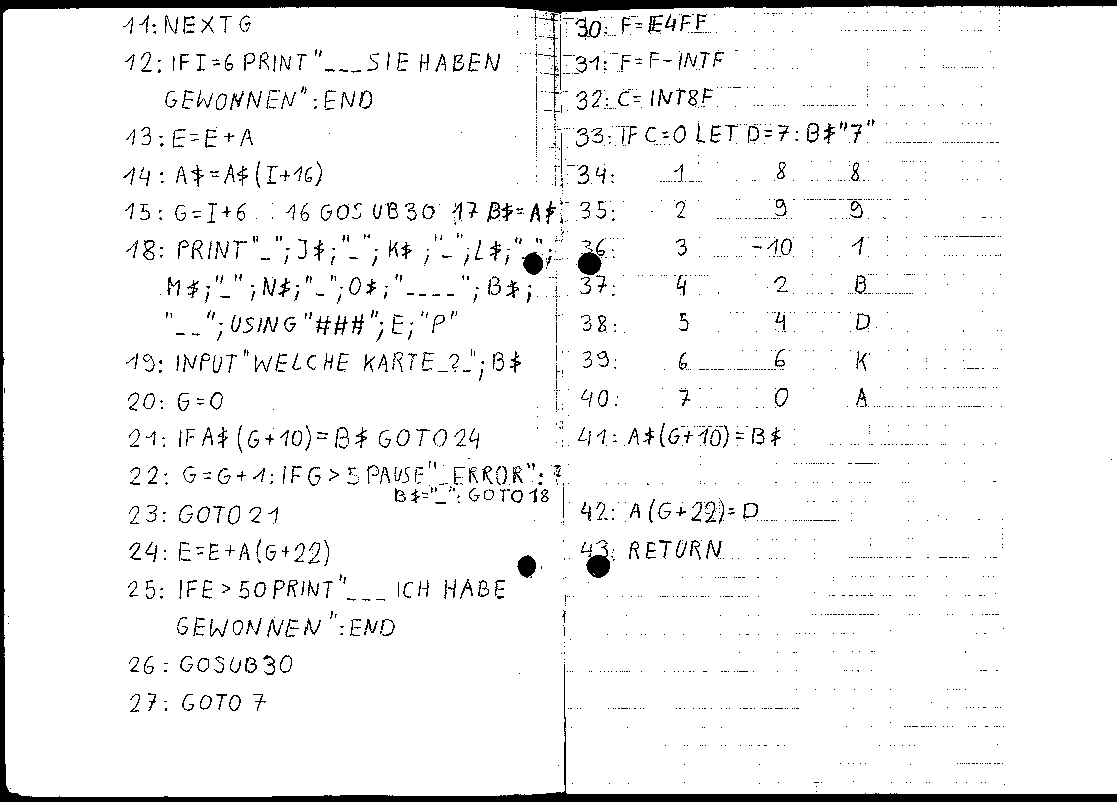 11: NEXT G
12: IF I=6 PRINT "___SIE HABEN
GEWONNEN":END
13: E=E+A
14: A$=A$(I+16)
15: G=I+6 16 GOSUB30 17 B$=A$
18: PRINT"_";J$;"_";K$;"_";L$;"_";
M$;"_";N$;"_";O$;"____";B$;
"__";USING"###";E;"P"
19: INPUT"WELCHE KARTE_?_";B$
20: G=0
21: IF A$(G+10)=B$ GOTO24
22: G=G+1:IF G>5 PAUSE"_ERROR":
B$="_":GOTO18
23: GOTO21
24: E=E+A(G+22)
25: IFE>50PRINT"___ ICH HABE
GEWONNEN":END
26: GOSUB30
27: GOTO 7
30: F=E4FF
31: F=F-INTF
32: C=INT8F
33: IF C=0 LET D=7:B$"7"
34: 1 8 8
35: 2 9 9
36: 3 -10 1
37: 4 2 B
38: 5 4 D
39: 6 6 K
40: 7 0 A
41: A$(G+10)=B$
42: A(G+22)=D
43: RETURN